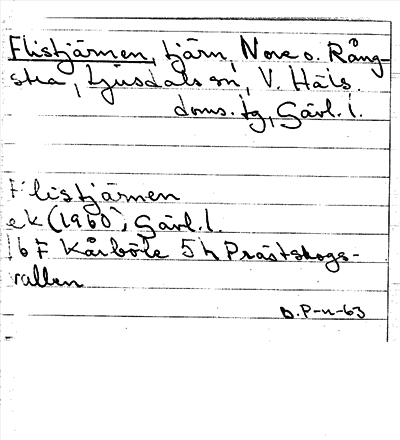 Flistjärnen, tjärn, Nore o. Rång-
stra, Ljusdals sn, V. Häls.
doms. tg, Gävl. l.
Flistjärnen
ek (1960), Gävl. l.
16 F Kårböle 5 h Prästskogs-
vallen
B. P-n-63